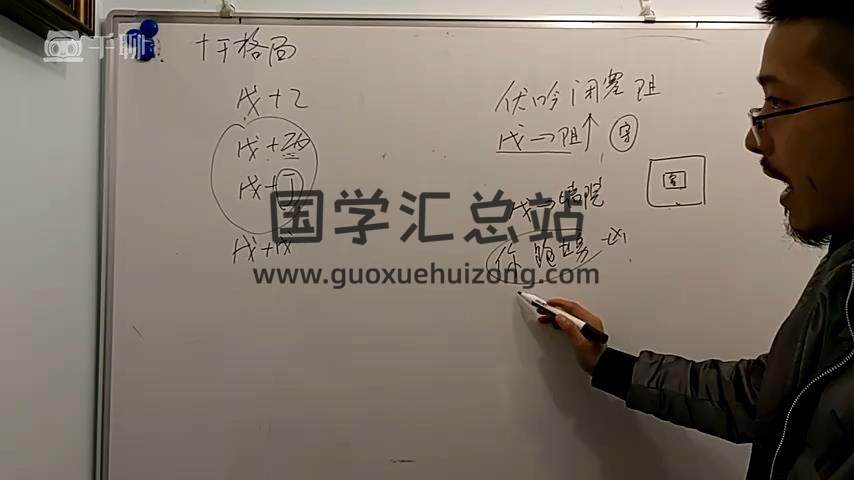 千聊
十干格局
戊+乙
戊+丙
戊+丁
戊+戊
伏吟 闭塞阻
戊→阻↑ 守
戊→医院
你跑
国学汇总站
www.guoxuehuizong.com